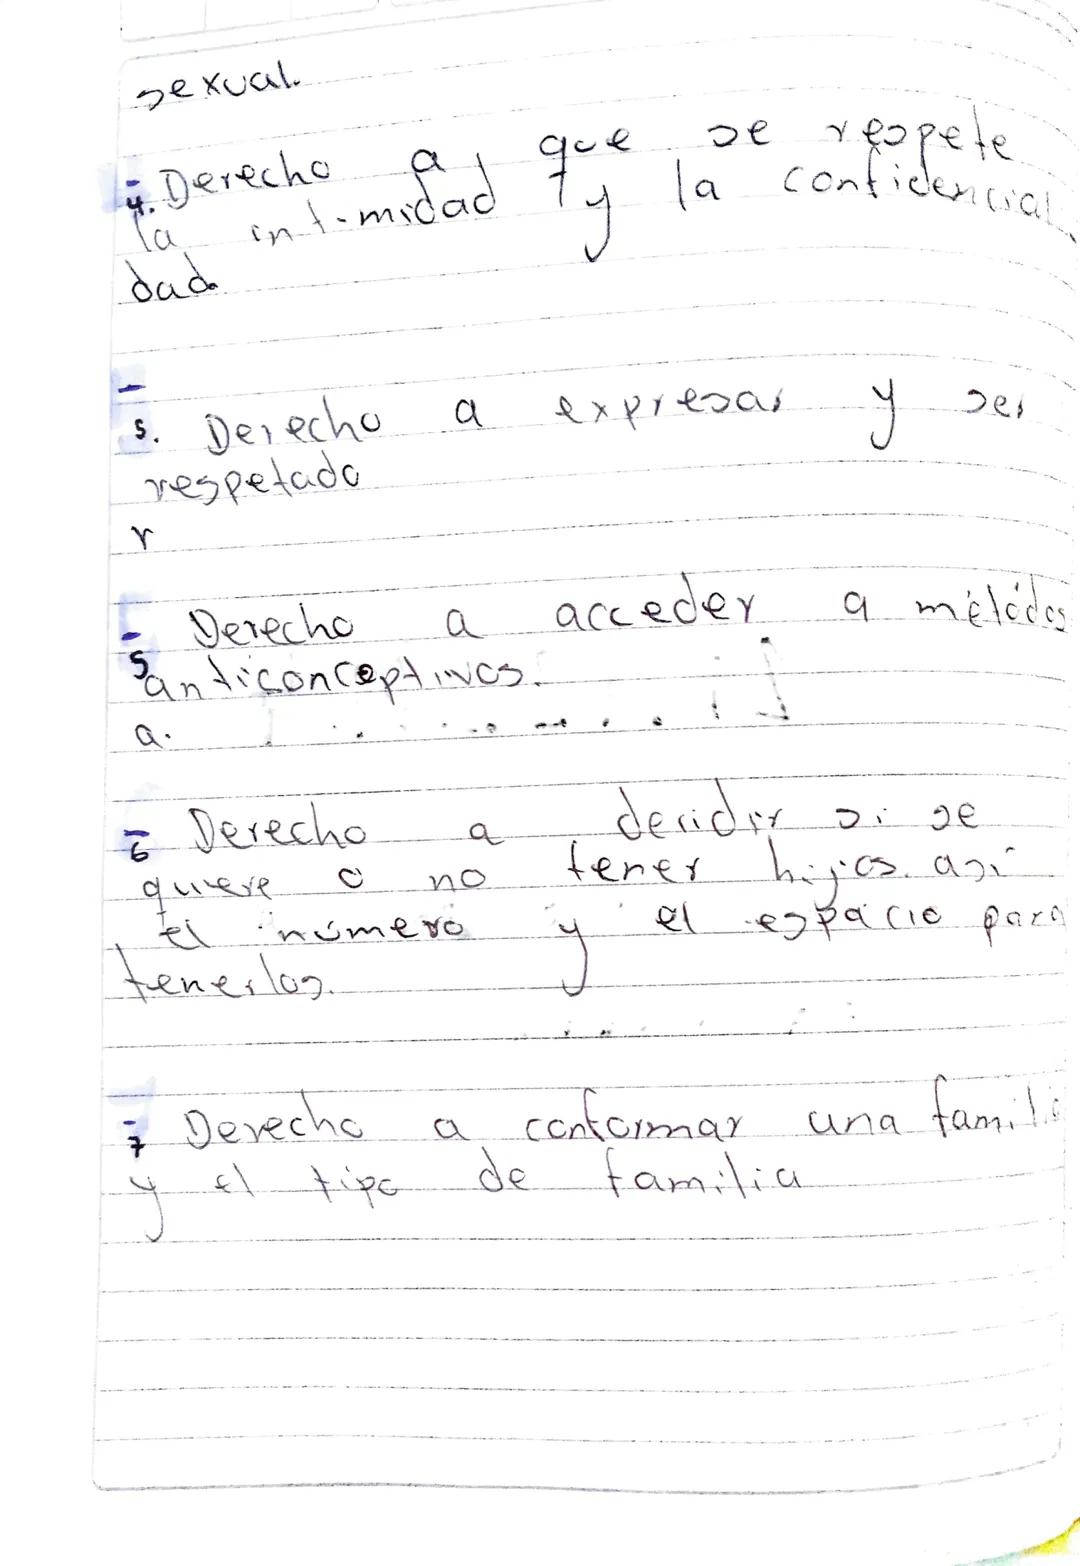 sexual.
- 4. Derecho a que se respete
la intimidad y la confidencial
dad.
-
5. Derecho a expresar y ser
respetado
r
- Derecho a acceder a métódos
5 anticonceptivos.
a.
- 6 Derecho a decidir si se
quiere o no tener hijos. así
el número y el espacio para
tenerlos.
- 7 Derecho a conformar una famili
y el tipo de familia